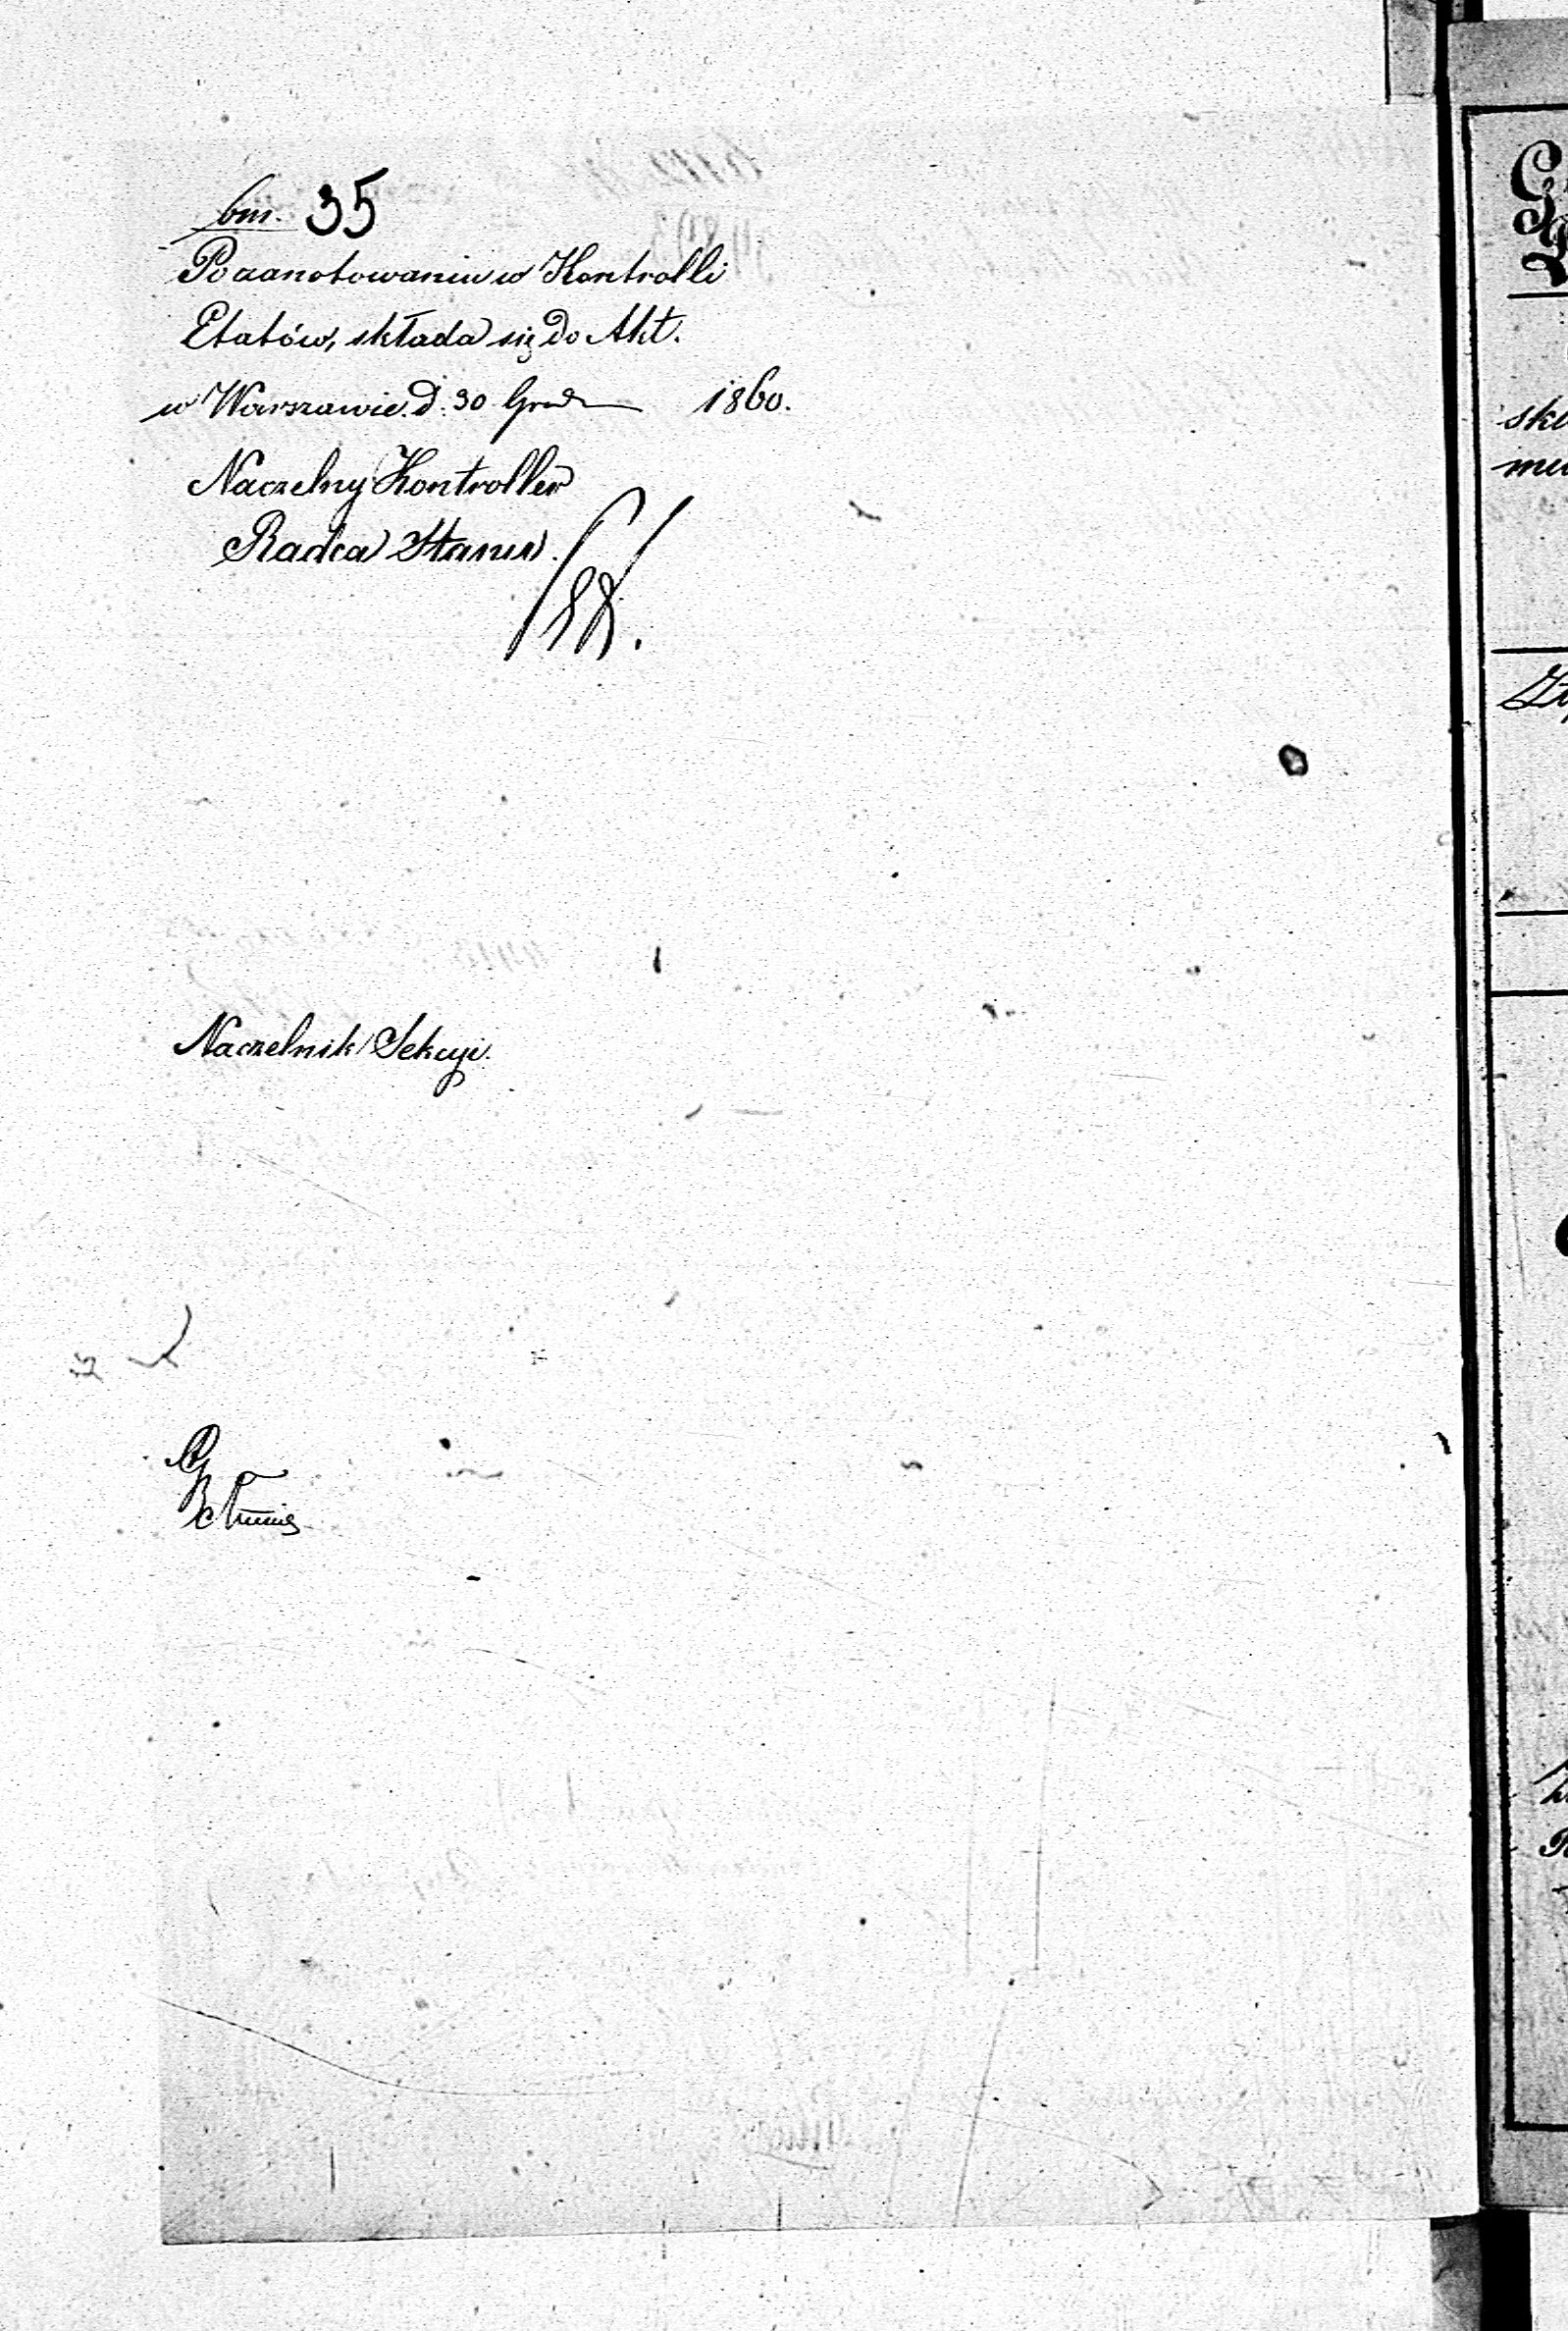 bm. 35
Po zanotowaniu w Kontrolli
Etatów, składa się do Akt.
w Warszawie d. 30 Grud 1860.
Naczelny Kontroller
Radca Stanu.
Naczelnik Sekcyi.